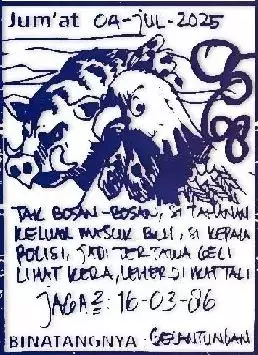 Jum'at 04-JUL-2025
TAK BOSAN-BOSAN, SI TAHANAN
KELUAR MASUK BUI, SI KEPALA
POLISI, JADI TERTAWA GELI
LIHAT KERA, LEHER DI IKAT TALI
JAGA2: 16-03-86
BINATANGNYA: GELANTUNGAN